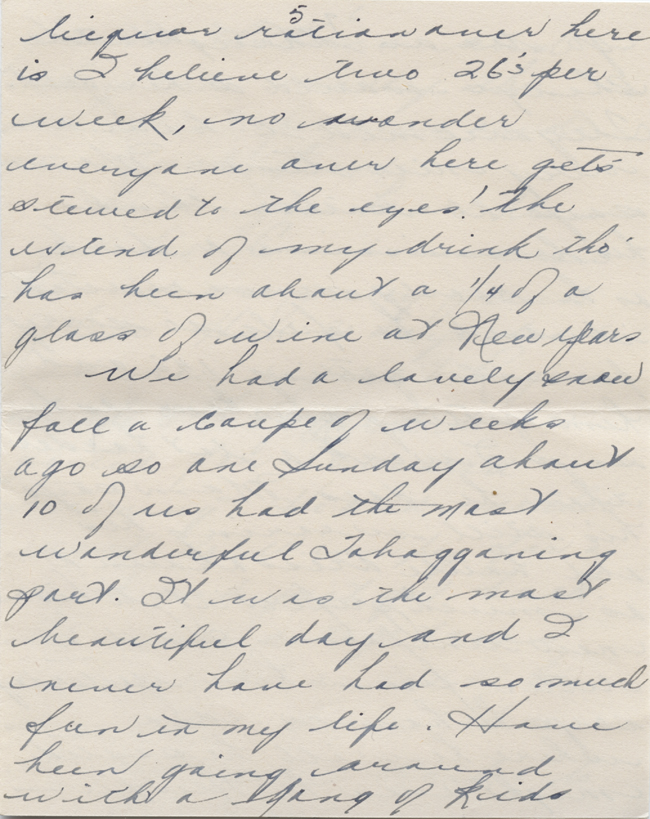 5
liequor ration over here
is I believe two 26's per
week, no wonder
everyone over here gets
stewed to the eyes! The
extend of my drink tho'
has been about a 1/4 of a
glass of wine at New Years
We had a lovely snow
fall a coupe of weeks
ago so one Sunday about
10 of us had the most
wonderful Tobagganing
part. It was the most
beautiful day and I
never have had so much
fun in my life. Have
been going around
with a gang of kids